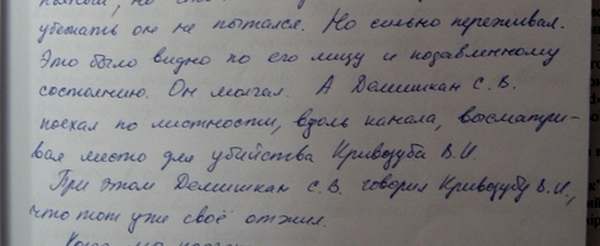 убежать он не пытался. Но сильно переживал.
Это было видно по его лицу и подавленному
состоянию. Он молчал. А Демишкан С.В.
поехал по мистности, вдоль канала, высматри-
вая место для убийства Кривозуба В.И.
При этом Демишкан С.В. говорил Кривозубу В.И.,
что тот уже своё отжил.